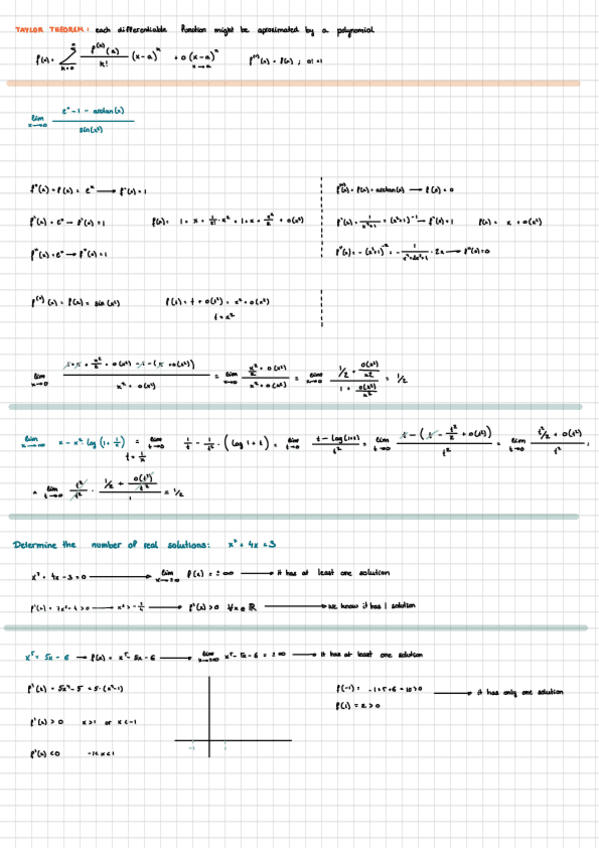 TAYLOR THEOREM: each differentiable function might be aproximated by a polynomial
f(x) = Σ k=0 n f⁽ᵏ⁾(a) / k! (x-a)ᵏ + o(x-a)ⁿ x→a f⁽⁰⁾(x) = f(x) ; 0! = 1
lim x→0 eˣ - 1 - arctan(x) / sin(x²)
f⁰(x) = f(x) = eˣ → f(0) = 1 f⁽⁰⁾(x) = f(x) = arctan(x) → f(0) = 0
f'(x) = eˣ → f'(0) = 1 f(x) = 1 + x + 1/2! · x² = 1 + x + x²/2 + o(x²) f'(x) = 1/x²+1 = (x²+1)⁻¹ → f'(0) = 1 f(x) = x + o(x²)
f''(x) = eˣ → f''(0) = 1 f''(x) = -(x²+1)⁻² = - 1/x⁴+2x²+1 · 2x → f''(0) = 0
f⁽⁰⁾(x) = f(x) = sin(x²) f(t) = t + o(t²) = x² + o(x²)
t = x²
lim x→0 1 + x + x²/2 + o(x²) - 1 - (x + o(x²)) / x² + o(x²) = lim x→0 x²/2 + o(x²) / x² + o(x²) = lim x→0 1/2 + o(x²)/x² / 1 + o(x²)/x² = 1/2
lim x→∞ x - x² · log(1 + 1/x) = lim t→0 1/t - 1/t² · (log 1+t) = lim t→0 t - log(1+t) / t² = lim t→0 t - (t - t²/2 + o(t²)) / t² = lim t→0 t²/2 + o(t²) / t² =
t = 1/x
= lim t→0 t²/t² · 1/2 + o(t²)/t² / 1 = 1/2
Determine the number of real solutions: x⁷ + 4x = 3
x⁷ + 4x - 3 = 0 → lim x→±∞ f(x) = ±∞ → it has at least one solution
f'(x) = 7x⁶ + 4 > 0 → x⁶ > -4/7 → f'(x) > 0 ∀x ∈ ℝ → we know it has 1 solution
x⁵ = 5x - 6 → f(x) = x⁵ - 5x + 6 → lim x→±∞ x⁵ - 5x + 6 = ±∞ → it has at least one solution
f'(x) = 5x⁴ - 5 = 5 · (x⁴-1) f(-1) = -1+5+6 = 10 > 0 → it has only one solution
f(1) = 2 > 0
f'(x) > 0 x>1 or x<-1
-1 1
f'(x) < 0 -1<x<1